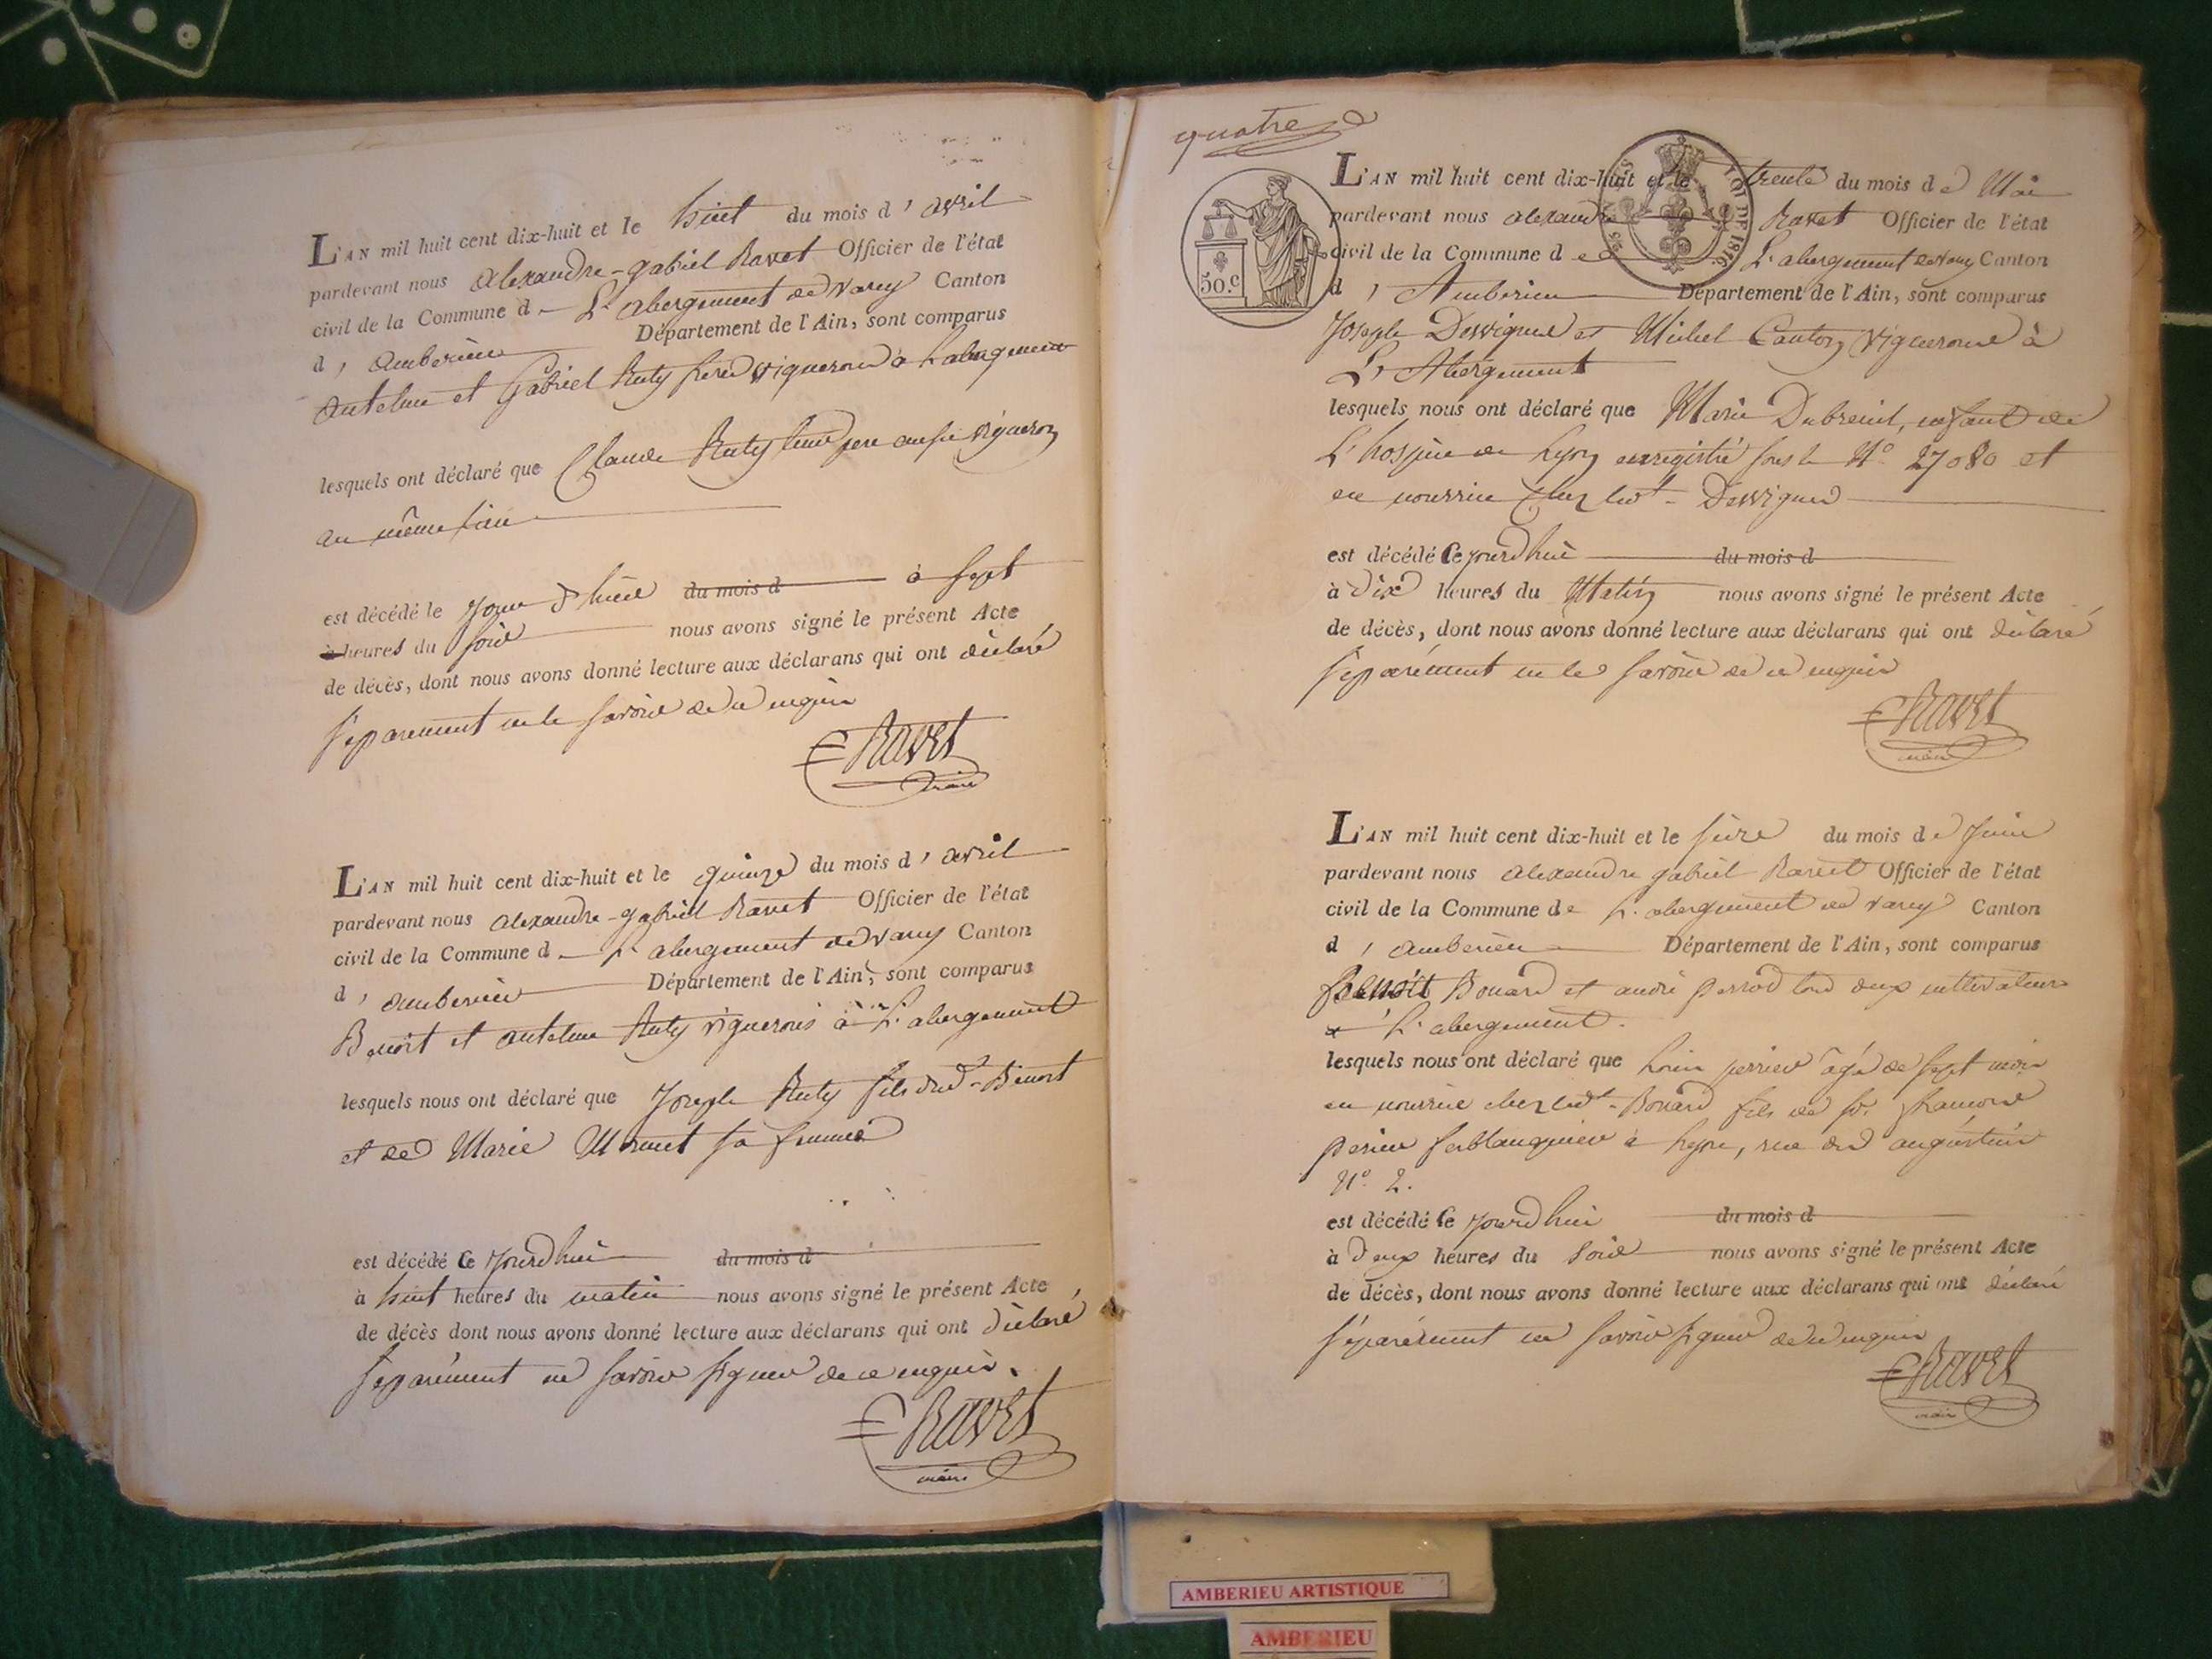 L'AN mil huit cent dix-huit et le huit du mois d'avril
pardevant nous alexandre-gabriel Ravet Officier de l'état
civil de la Commune d L'abergement de varey Canton
d'amberieu Département de l'Ain, sont comparus
antelme et Gabriel Ruty frères vignerons à Labergement
lesquels ont déclaré que Claude Ruty leur pere aussi vigneron
au même lieu
est décédé le jour d'hui du mois d à sept
à heures du soir nous avons signé le présent Acte
de décès, dont nous avons donné lecture aux déclarans qui ont déclaré
séparement ne le savoir de ce enquis
Ravet
maire
L'AN mil huit cent dix-huit et le quinze du mois d'avril
pardevant nous alexandre-gabriel Ravet Officier de l'état
civil de la Commune d L'abergement de varey Canton
d'amberieu Département de l'Ain, sont comparus
Benoit et antelme Ruty vignerons à L'abergement
lesquels nous ont déclaré que Joseph Ruty fils dud. Benoit
et de Marie Monnet sa femme
est décédé Ce jourd'hui du mois d
à huit heures du matin nous avons signé le présent Acte
de décès dont nous avons donné lecture aux déclarans qui ont déclaré
séparément ne savoir signer de ce enquis.
Ravet
maire
quatre
50.c
LOI DE 1816
L'AN mil huit cent dix-huit et le trente du mois de Mai
pardevant nous alexandre Ravet Officier de l'état
civil de la Commune de L'abergement de varey Canton
d'Amberieu Département de l'Ain, sont comparus
Joseph Dessignes et Michel Canton vignerons à
L'Abergement
lesquels nous ont déclaré que Marie Dubreuil, enfant de
L'hospice de Lyon enregistré sous le N° 27080 et
en nourrice chez led. Dessignes
est décédé Ce jourd'hui du mois d
à dix heures du Matin nous avons signé le présent Acte
de décès, dont nous avons donné lecture aux déclarans qui ont déclaré
séparément ne le savoir de ce enquis
Ravet
maire
L'AN mil huit cent dix-huit et le seize du mois de Juin
pardevant nous alexandre gabriel Ravet Officier de l'état
civil de la Commune de L'abergement de varey Canton
d'amberieu Département de l'Ain, sont comparus
Benoit Bonard et andré perrod tous deux cultivateurs
à L'abergement.
lesquels nous ont déclaré que Louis perrier âgé de sept mois
en nourrice chez led. Bonard fils de Sr. françois
perier ferblanquier à Lyon, rue des augustins
N° 2.
est décédé Ce jourd'hui du mois d
à deux heures du soir nous avons signé le présent Acte
de décès, dont nous avons donné lecture aux déclarans qui ont déclaré
séparément ne savoir signer de ce enquis
Ravet
maire
AMBERIEU ARTISTIQUE
AMBERIEU